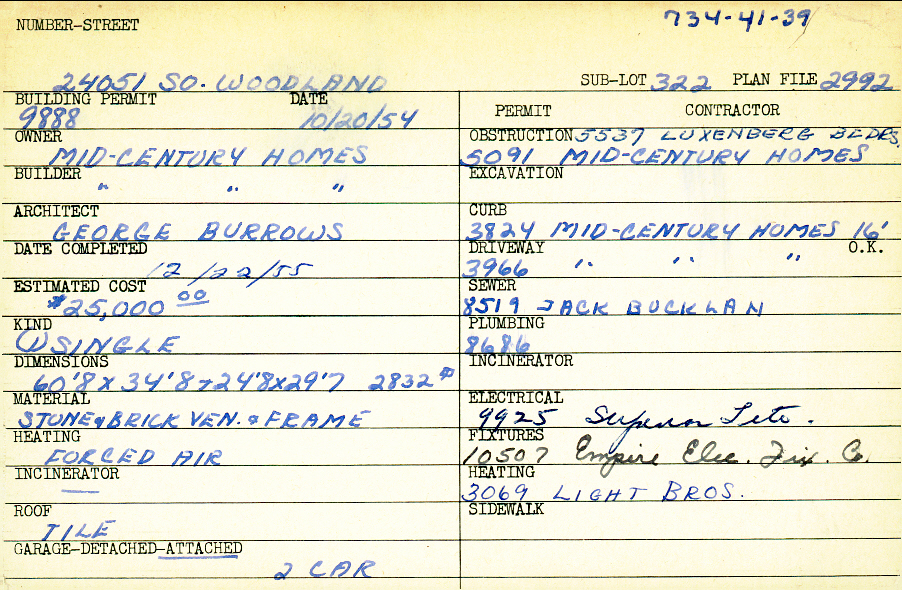 NUMBER-STREET
734-41-39
24051 SO. WOODLAND
SUB-LOT 322 PLAN FILE 2992
BUILDING PERMIT DATE
9888 10/20/54
PERMIT CONTRACTOR
OWNER
MID-CENTURY HOMES
OBSTRUCTION 5537 LUXENBERG BLDRS.
5091 MID-CENTURY HOMES
BUILDER
" " "
EXCAVATION
ARCHITECT
GEORGE BURROWS
CURB
3824 MID-CENTURY HOMES 16'
DATE COMPLETED
12/22/55
DRIVEWAY O.K.
3966 " " "
ESTIMATED COST
$25,000 00
SEWER
8519 JACK BUCKLAN
KIND
W SINGLE
PLUMBING
8686
DIMENSIONS
60'8 X 34'8 24'8 x 29'7 2832
INCINERATOR
MATERIAL
STONE & BRICK VEN. & FRAME
ELECTRICAL
9925 Superior
HEATING
FORCED AIR
FIXTURES
10507 Empire Elec. Fix. Co.
INCINERATOR
—
HEATING
3069 LIGHT BROS.
ROOF
TILE
SIDEWALK
GARAGE-DETACHED-ATTACHED
2 CAR